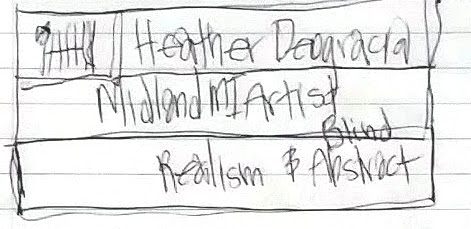 Heather Deoaracia
Midland MI Artist
Blind
Realism & Abstract